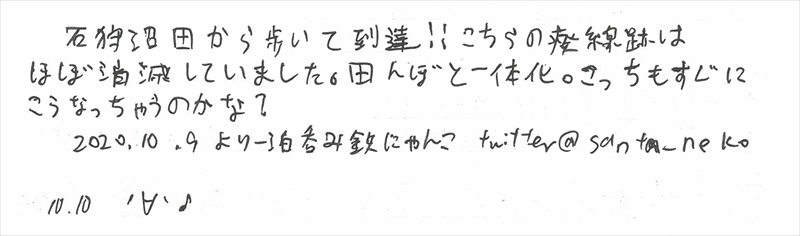 石狩沼田から歩いて到達!!こちらの廃線跡は
ほぼ消滅していました。田んぼと一体化。さっちもすぐに
こうなっちゃうのかな?
2020.10.9 より一泊呑み鉄にゃんこ twitter@santa_neko
10.10 '∀'